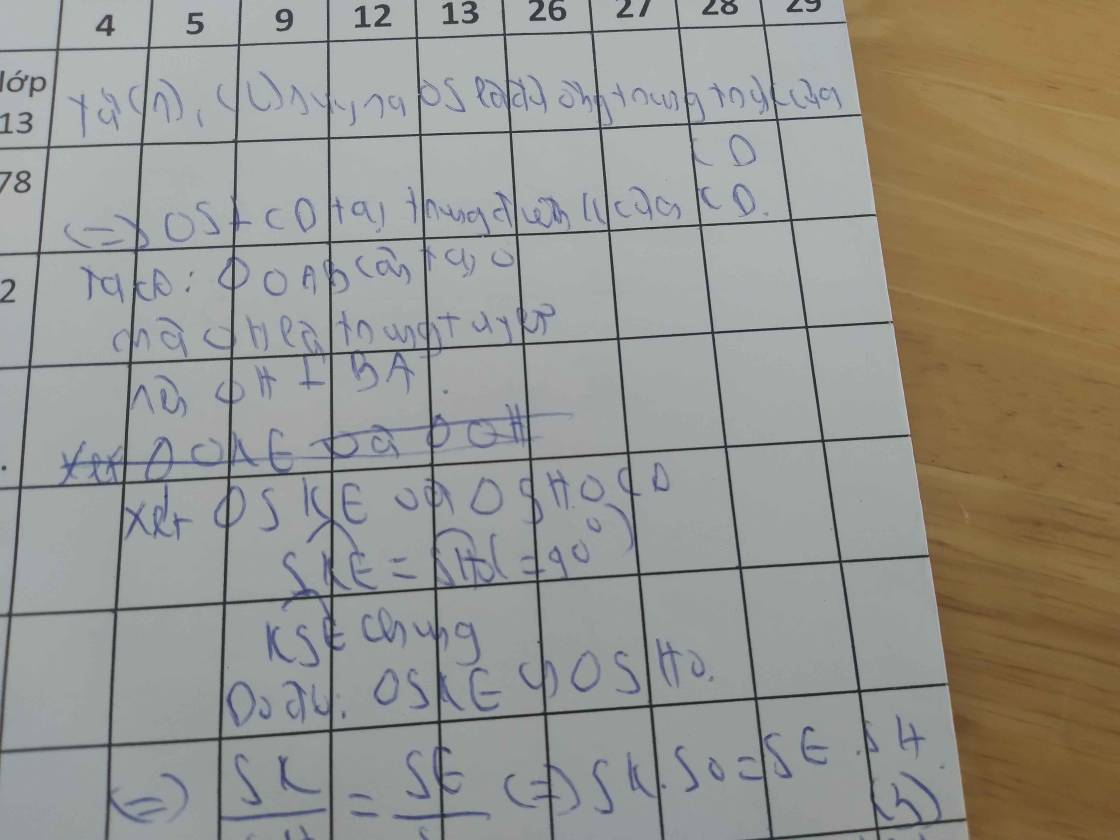 4 5 9 12 13 26 27 28 29
lớp
13
Từ (1), (2) suy ra OS là đường trung trực của
CD
78
(=) OS ⊥ CD tại trung điểm K của CD.
2
Ta có: Δ OAB cân tại O
mà OH là trung tuyến
nên OH ⊥ BA.
Xét Δ OKE và Δ OH
Xét Δ SKE và Δ SHO có
SKE = SHO (= 90°)
KSE chung
Do đó: Δ SKE ∽ Δ SHO.
(=) SK = SE (=) SK.SO = SE.SH
(3)